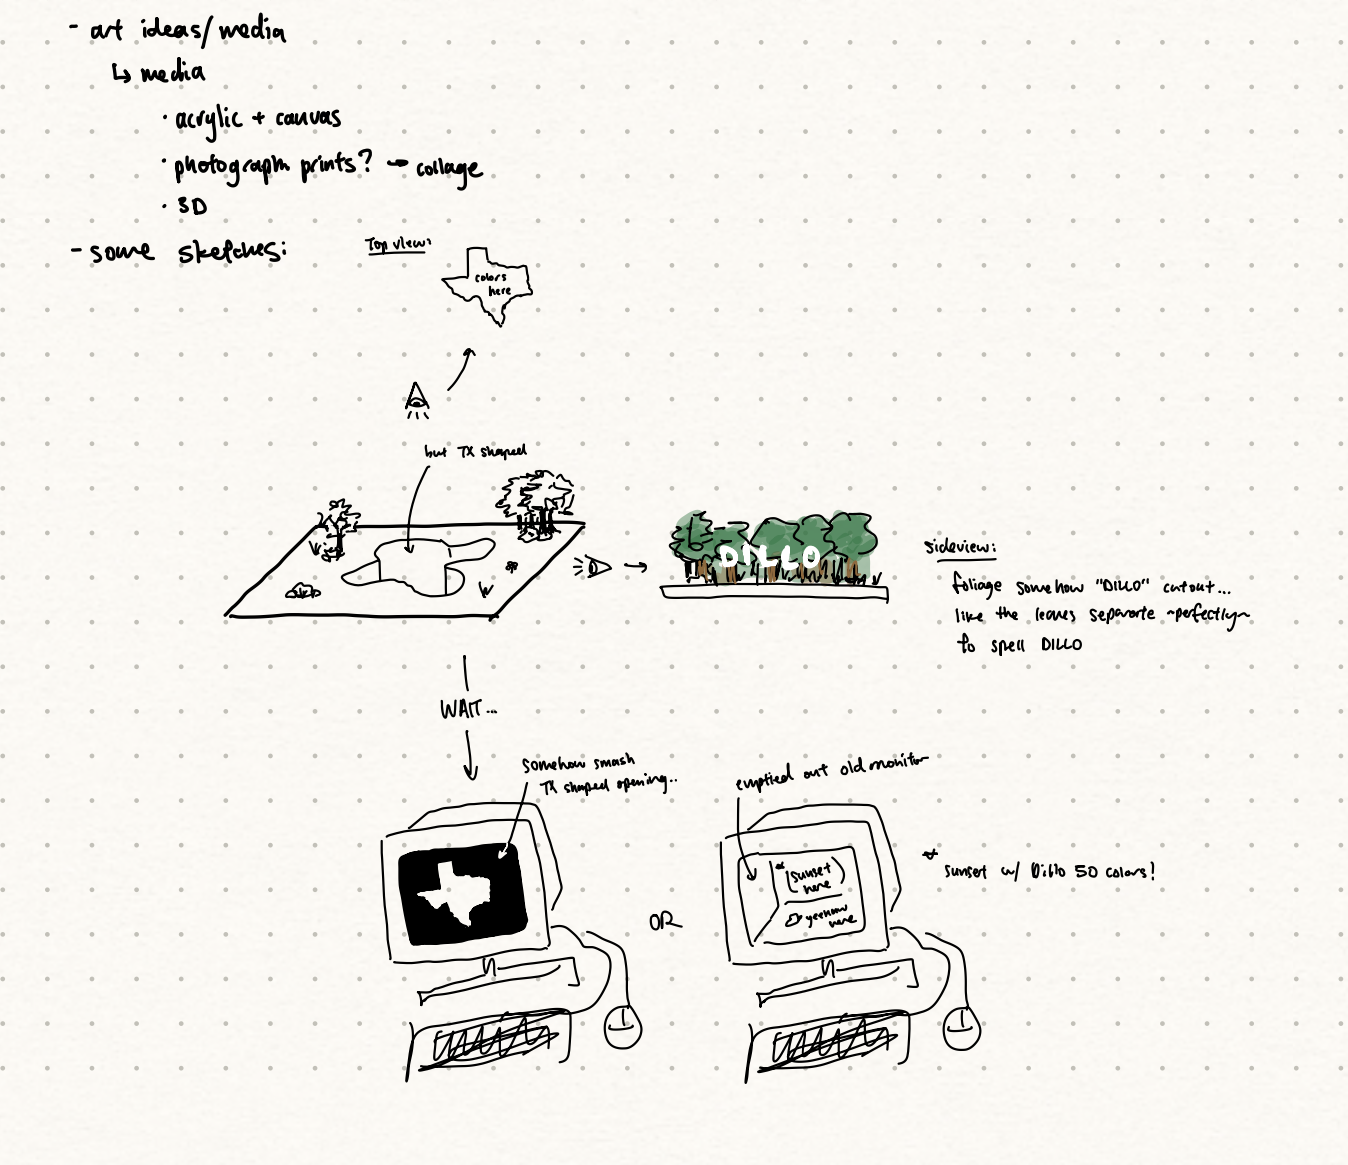 - art ideas/media
↳ media
· acrylic + canvas
· photograph prints? → collage
· 3D
- some sketches:
Top view:
colors
here
but TX shaped
DILLO
sideview:
foliage somehow "DILLO" cutout...
like the leaves separate ~perfectly~
to spell DILLO
WAIT...
somehow smash
TX shaped opening...
emptied out old monitor
* (sunset
here)
yeehaw
here
OR
* sunset w/ Dillo 50 colors!